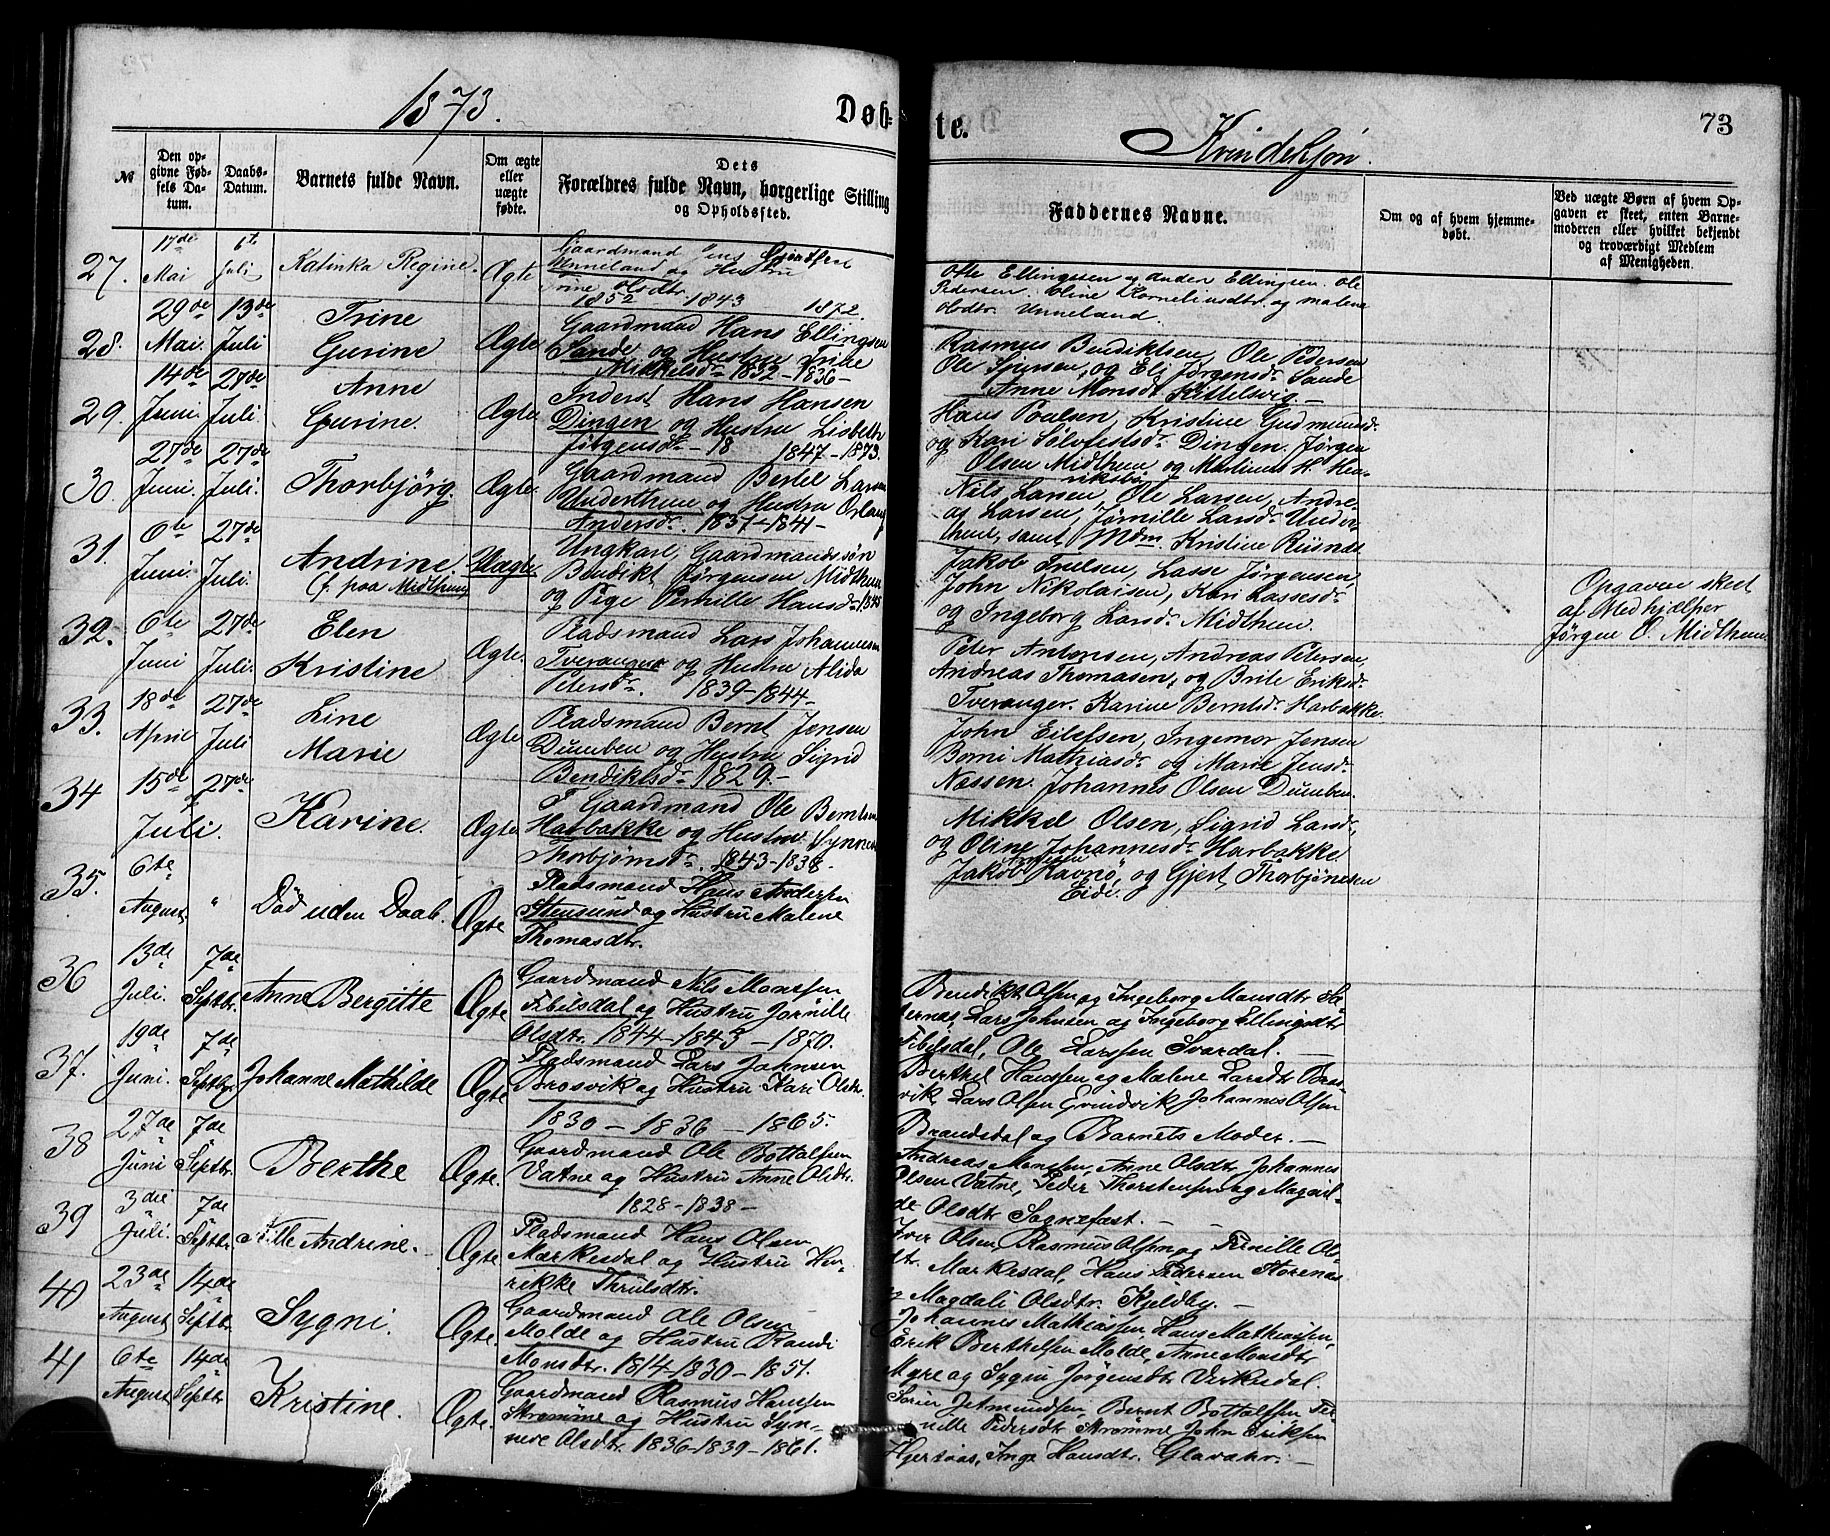 1873.
Døb-
te.
Kvindekjøn.
73
№
Den opgivne Fødsels Datum.
Daabs-Datum.
Barnets fulde Navn.
Om ægte eller uægte fødte.
Dets Forældres fulde Navn, borgerlige Stilling og Opholdssted.
Faddernes Navne.
Om og af hvem hjemmedøbt.
Ved uægte Børn af hvem Opgaven er skeet, enten Barnemoderen eller hvilket bekjendt og troværdigt Medlem af Menigheden.
27. 17de Mai 6te Juli Katinka Regine. Ægte
Gaardmand Jens
Unneland og Hustru
Trine Olsdtr.
1852 1843 1872.
Ellingsen og Ellingsen. Ole
Pedersen. Oline Korneliusdtr. og Malene
Olsdtr. Unneland.
28. 29de Mai. 13de Juli Trine Gurine Ægte
Gaardmand Hans Ellingsen
Sande og Hustru Trine
Mikkelsdr. 1832-1836-
Rasmus Bendiktsen, Ole Pedersen
Ole Sjursen, og Eli Jørgensdr. Sande
Anne Monsdr. Kittelsvig.-
29. 14de Juni. 27de Juli. Anne Gurine. Ægte
Inderst Hans Hansen
Dingen og Hustru Lisbeth
- 18 1847-1873.
Hans Poulsen, Kristine Gudmunds-
og Kari Sølvfestsdr. Dingen. Jørgen
Olsen Midthun og Martinus H. Hen-
riksbø
30. 27de Juni. 27de Juli. Thorbjørg. Ægte.
Gaardmand Bertel Larsen
Underthun og Hustru
Andersdr. 1837-1841-
Nils Larsen, Ole Larsen, Andre-
as Larsen, Jørnille Larsdr. Under-
thun, samt Mdm. Kristine Risnes
31. 6te Juni. 27de Juli. Andrine (f. paa Midthun) Uægte.
Ungkarl, Gaardmandssøn
Bendikt Jørgensen Midthun
og Pige Pernille Hansdr. 1845
Jakob Trulsen, Lasse Jørgensen,
John Nikolaisen, Kari Lassesdr.
og Ingeborg Larsdr. Midthun.
Opgaven skeet
af Medhjælper
Jørgen O. Midthun.
32. 6te Juni 27de Juli. Elen Kristine Ægte.
Pladsmand Lars Johannesen
Tveranger og Hustru Alida
Petersdr. 1839-1844-
Peter Antonsen, Andreas Petersen,
Andreas Thomasen, og Brite Eriksdr.
Tveranger. Karine Berntsdr. Harbakke.
33. 18de April 27de Juli Line Marie Ægte.
Pladsmand Bernt Jensen
Dumben og Hustru Sigrid
Bendiktsdr. 1829-
John Eilefsen, Ingemor Jensen
Borni Mathiasdr. og Marie Jensdr.
Næssen. Johannes Olsen Dumben.
34 15de Juli. 27de Karine. Ægte
Gaardmand Ole Berntsen
Harbakke og Hustru Synneve
Thorbjørnsdr. 1843-1838-
Mikkel Olsen, Sigrid Larsdr.,
og Oline Johannesdr. Harbakke
Jakob Kavnø, og Gjert Thorbjørnsen
Eide.
35. 6te August " Død uden Daab. Ægte
Pladsmand Hans Andersen
Stensund og Hustru Malene
Thomasdtr.
36 13de Juli. 7de Septbr. Anne Bergitte Ægte
Gaardmand Nils Monssen
Fibelsdal og Hustru Jørnille
Olsdtr. 1844-1843-1870.
Bendikt Olsen og Ingeborg Monsdtr.
Lars Johnsen og Ingeborg Ellingsdtr
Fibelsdal, Ole Larssen Svardal.-
37. 19de Juni. 7de Septbr. Johanne Mathilde Ægte
Pladsmand Lars Johnsen
Brosvik og Hustru Kari Olsdtr.
1830-1836-1865.
Berthel Hanssen og Malene Larsdtr Bros-
vik, Lars Olsen Evindvik, Johannes Olsen
Brandsdal og Barnets Moder.-
38 27de Juni 7de Septbr. Berthe Ægte.
Gaardmand Ole Bottolfsen
Vatne og Hustru Anne Olsdtr.
1828-1838-
Andreas Monssen, Anne Olsdtr, Johannes
Olsen Vatne, Peder Thorstensen og Magnil-
de Olsdtr Sognefæst.-
39 3die Juli. 7de Septbr. Andrine. Ægte
Pladsmand Hans Olsen
Markesdal og Hustru Hen-
rikke Thrulsdtr.
Iver Olsen, Rasmus Olsen og Pernille Ols-
dtr. Markesdal, Hans Pedersen Storenæs
og Magdali Olsdtr. Kjeldby.-
40 23de August 14de Septbr. Sygni. Ægte
Gaardmand Ole Olsen
Molde og Hustru Randi
Monsdtr. 1814-1830-1851.
Johannes Mathiassen, Hans Mathiassen,
Erik Berthelsen Molde, Anne Monsdtr
Myre og Sygni Jørgensdtr Virkesdal.
41 6te August 14de Septbr Kristine. Ægte.
Gaardmand Rasmus Hanssen
Strømme og Hustru Syn-
neve Olsdtr. 1836-1839-1861.
Søren Jetmundsen, Bernt Bottolfsen, Per-
nille Pedersdtr Strømme, John Eriksen
Inge Hansdtr. Glavær.-